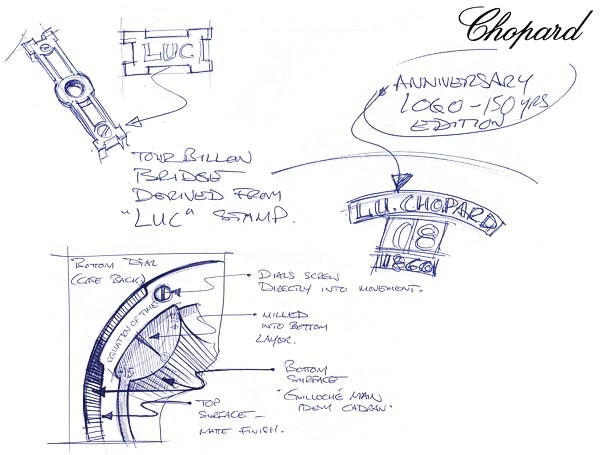 Chopard
LUC
ANNIVERSARY
LOGO - 150 YRS
EDITION
TOURBILLON
BRIDGE
DERIVED FROM
"LUC" STAMP.
L.U.CHOPARD
08
1860
BOTTOM DIAL
(CASE BACK)
EQUATION OF TIME
-15
DIALS SCREW
DIRECTLY INTO MOVEMENT.
MILLED
INTO BOTTOM
LAYER.
BOTTOM
SURFACE
"GUILLOCHÉ MAIN
IDEM CADRAN"
TOP
SURFACE -
MATTE FINISH.